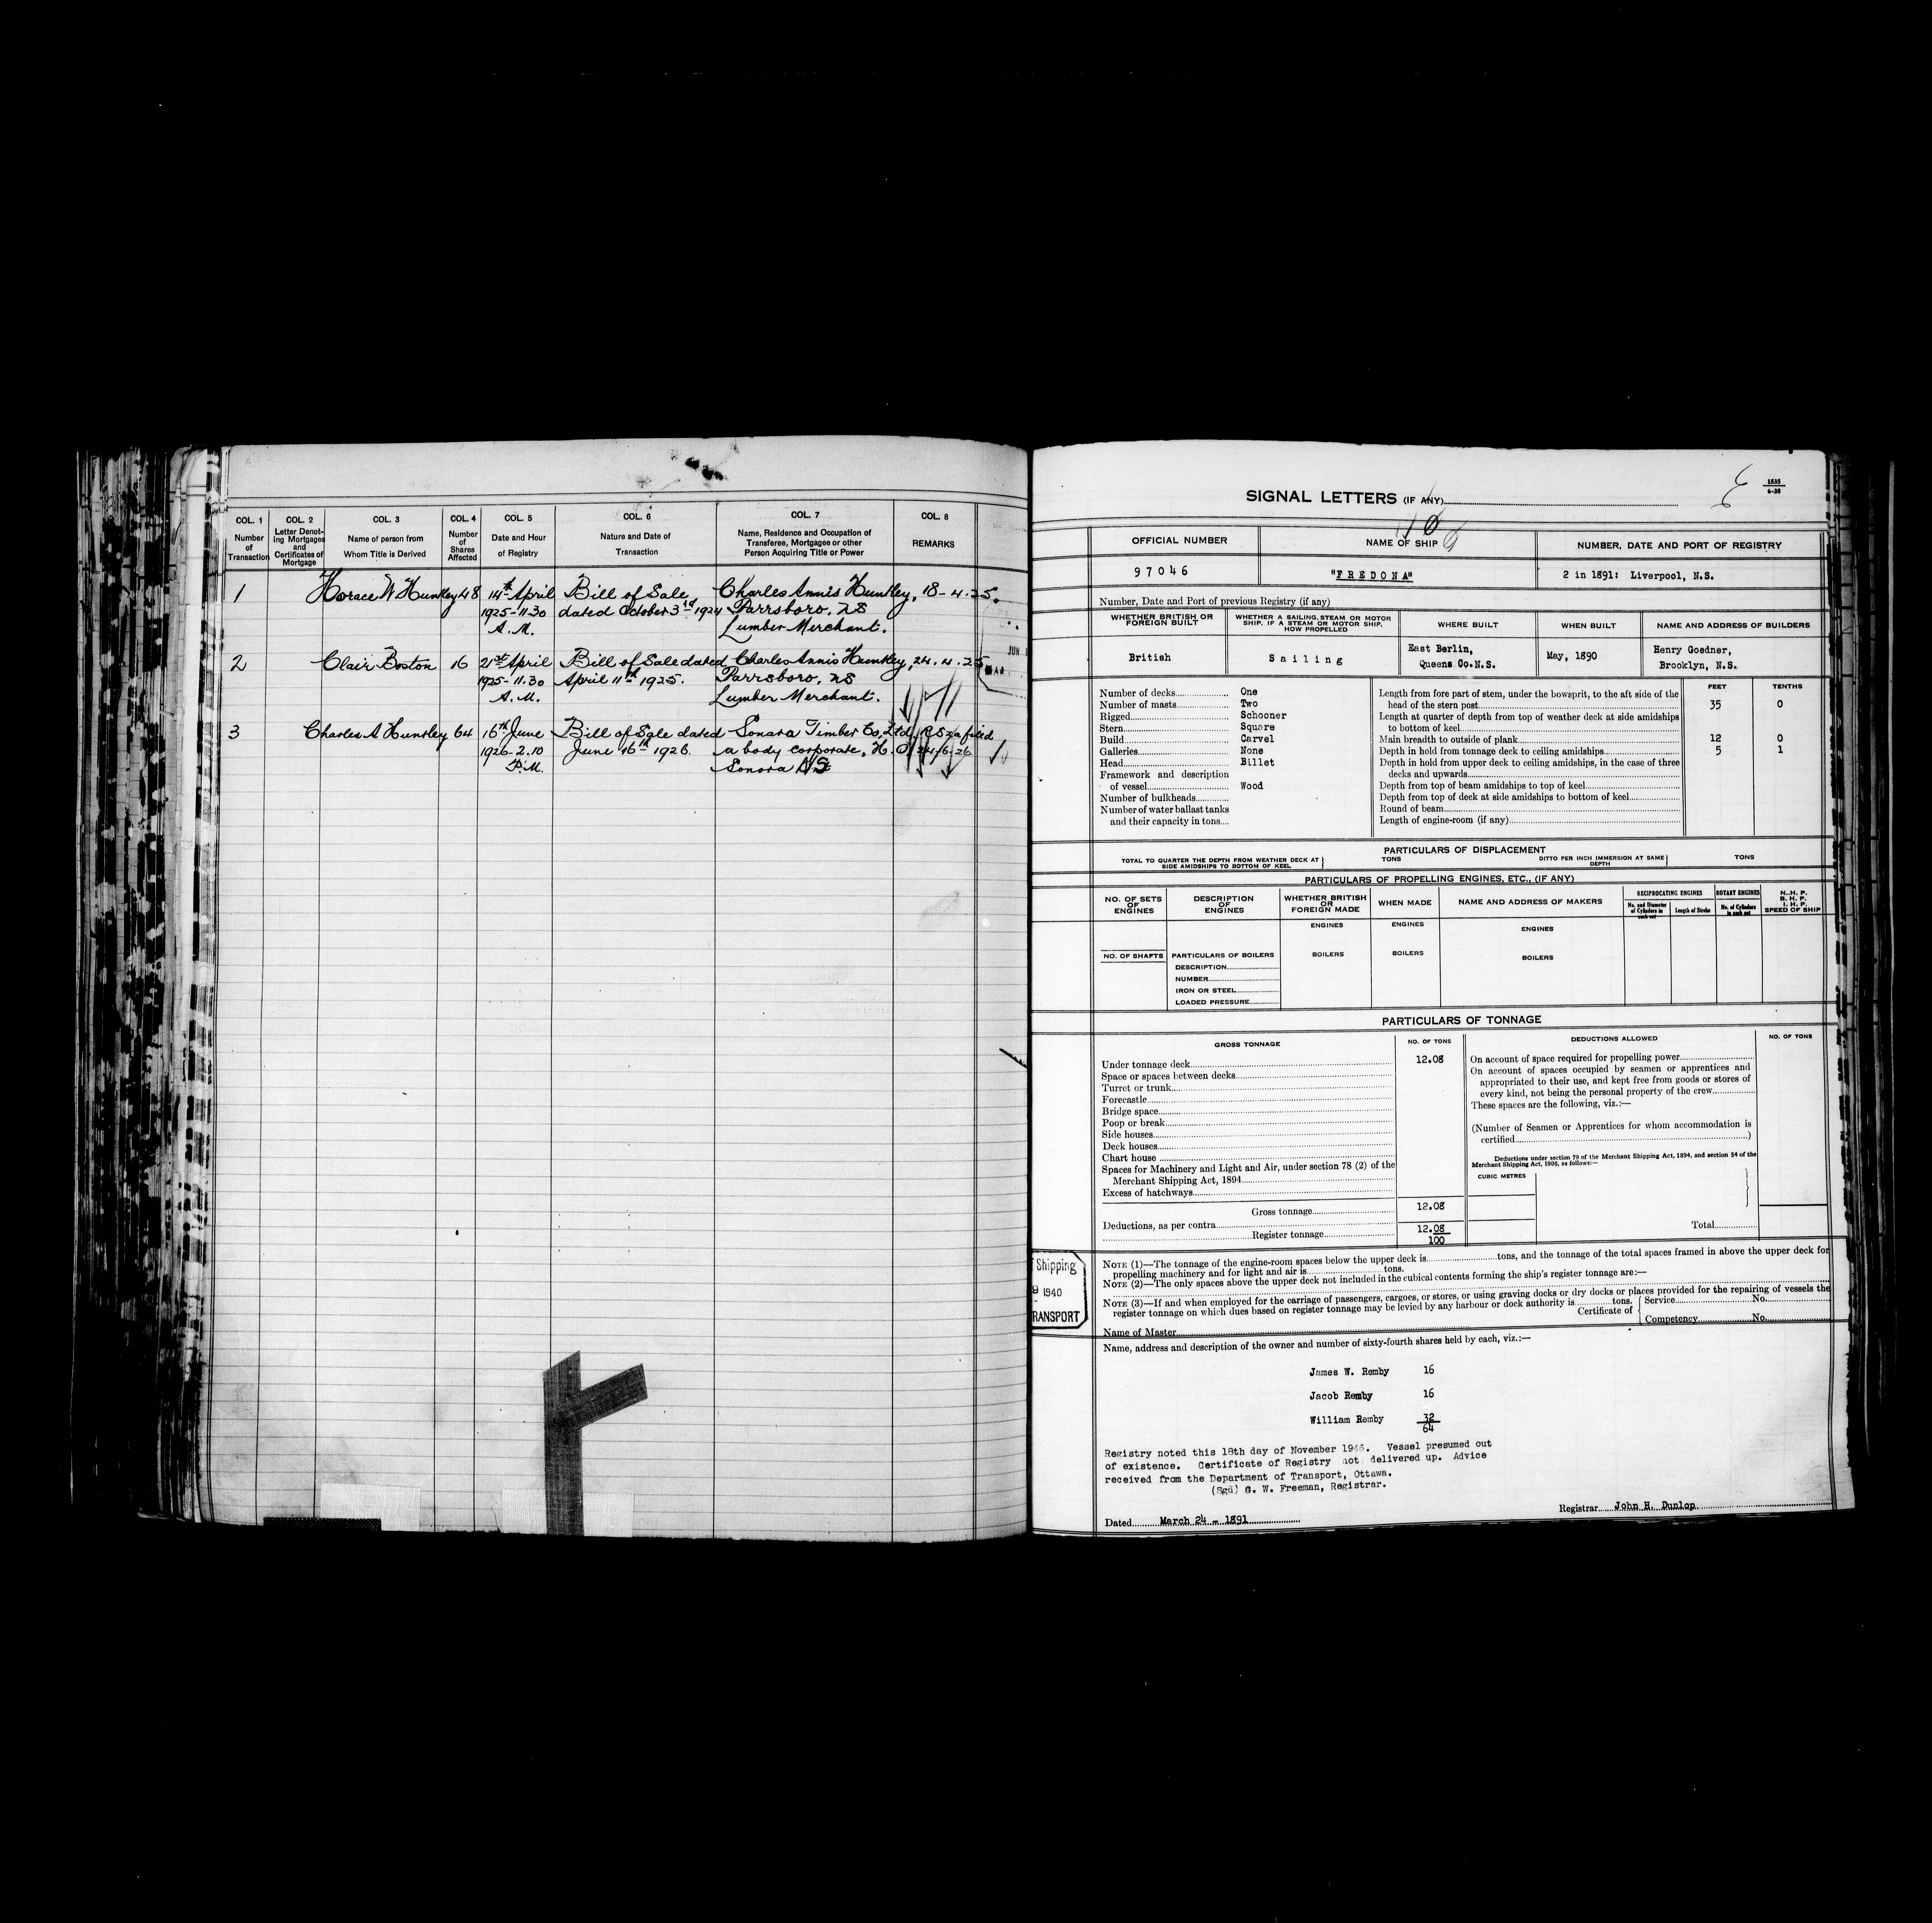 COL. 1 COL. 2 COL. 3 COL. 4 COL. 5 COL. 6 COL. 7 COL. 8
Number of Transaction
Letter Denoting Mortgages and Certificates of Mortgage
Name of person from Whom Title is Derived
Number of Shares Affected
Date and Hour of Registry
Nature and Date of Transaction
Name, Residence and Occupation of Transferee, Mortgagee or other Person Acquiring Title or Power
REMARKS
1 Horace W Huntley 48 14th April Bill of Sale Charles Annis Huntley, 18-4-25.
1925-11.30 dated October 3rd 1924 Parrsboro, NS
A.M. Lumber Merchant.
2 Clair Boston 16 21st April Bill of Sale dated Charles Annis Huntley, 24.4.25
1925-11.30 April 11th 1925. Parrsboro, NS
A.M. Lumber Merchant.
3 Charles A Huntley 64 16th June Bill of Sale dated Sonora Timber Co, Ltd.
1926-2.10 June 16th 1926. a body corporate, H.O. 24/6/26
P.M. Sonora NS
JUN
SIGNAL LETTERS (IF ANY)
1535
6-38
OFFICIAL NUMBER NAME OF SHIP NUMBER, DATE AND PORT OF REGISTRY
97046 "FREDONA" 2 in 1891: Liverpool, N.S.
Number, Date and Port of previous Registry (if any)
WHETHER BRITISH OR FOREIGN BUILT
WHETHER A SAILING, STEAM OR MOTOR SHIP, IF A STEAM OR MOTOR SHIP, HOW PROPELLED
WHERE BUILT WHEN BUILT NAME AND ADDRESS OF BUILDERS
British Sailing East Berlin, Queens Co.N.S. May, 1890 Henry Goedner, Brooklyn, N.S.
FEET TENTHS
Number of decks One
Number of masts Two
Rigged Schooner
Stern Square
Build Carvel
Galleries None
Head Billet
Framework and description
of vessel Wood
Number of bulkheads
Number of water ballast tanks
and their capacity in tons
Length from fore part of stem, under the bowsprit, to the aft side of the
head of the stern post 35 0
Length at quarter of depth from top of weather deck at side amidships
to bottom of keel
Main breadth to outside of plank 12 0
Depth in hold from tonnage deck to ceiling amidships 5 1
Depth in hold from upper deck to ceiling amidships, in the case of three
decks and upwards
Depth from top of beam amidships to top of keel
Depth from top of deck at side amidships to bottom of keel
Round of beam
Length of engine-room (if any)
PARTICULARS OF DISPLACEMENT
TOTAL TO QUARTER THE DEPTH FROM WEATHER DECK AT SIDE AMIDSHIPS TO BOTTOM OF KEEL } TONS DITTO PER INCH IMMERSION AT SAME DEPTH } TONS
PARTICULARS OF PROPELLING ENGINES, ETC., (IF ANY)
NO. OF SETS OF ENGINES
DESCRIPTION OF ENGINES
WHETHER BRITISH OR FOREIGN MADE
WHEN MADE
NAME AND ADDRESS OF MAKERS
RECIPROCATING ENGINES
No. and Diameter of Cylinders in each set
Length of Stroke
ROTARY ENGINES
No. of Cylinders in each set
N. H. P.
B. H. P.
I. H. P.
SPEED OF SHIP
ENGINES ENGINES ENGINES
NO. OF SHAFTS PARTICULARS OF BOILERS BOILERS BOILERS BOILERS
DESCRIPTION
NUMBER
IRON OR STEEL
LOADED PRESSURE
PARTICULARS OF TONNAGE
GROSS TONNAGE NO. OF TONS DEDUCTIONS ALLOWED NO. OF TONS
Under tonnage deck 12.08
Space or spaces between decks
Turret or trunk
Forecastle
Bridge space
Poop or break
Side houses
Deck houses
Chart house
Spaces for Machinery and Light and Air, under section 78 (2) of the
Merchant Shipping Act, 1894
Excess of hatchways
Gross tonnage 12.08
Deductions, as per contra
Register tonnage 12.08
100
On account of space required for propelling power
On account of spaces occupied by seamen or apprentices and
appropriated to their use, and kept free from goods or stores of
every kind, not being the personal property of the crew
These spaces are the following, viz.:—
(Number of Seamen or Apprentices for whom accommodation is
certified)
Deductions under section 79 of the Merchant Shipping Act, 1894, and section 54 of the
Merchant Shipping Act, 1906, as follows:—
CUBIC METRES
Total
NOTE (1)—The tonnage of the engine-room spaces below the upper deck is tons, and the tonnage of the total spaces framed in above the upper deck for
propelling machinery and for light and air is tons.
NOTE (2)—The only spaces above the upper deck not included in the cubical contents forming the ship's register tonnage are:—
NOTE (3)—If and when employed for the carriage of passengers, cargoes, or stores, or using graving docks or dry docks or places provided for the repairing of vessels the
register tonnage on which dues based on register tonnage may be levied by any harbour or dock authority is tons.
Certificate of { Service No.
Competency No.
Name of Master
f Shipping
9 1940
RANSPORT
Name, address and description of the owner and number of sixty-fourth shares held by each, viz.:—
James W. Remby 16
Jacob Remby 16
William Remby 32
64
Registry noted this 18th day of November 1946. Vessel presumed out
of existence. Certificate of Registry not delivered up. Advice
received from the Department of Transport, Ottawa.
(Sgd) G. W. Freeman, Registrar.
Dated March 24 - 1891
Registrar John H. Dunlop